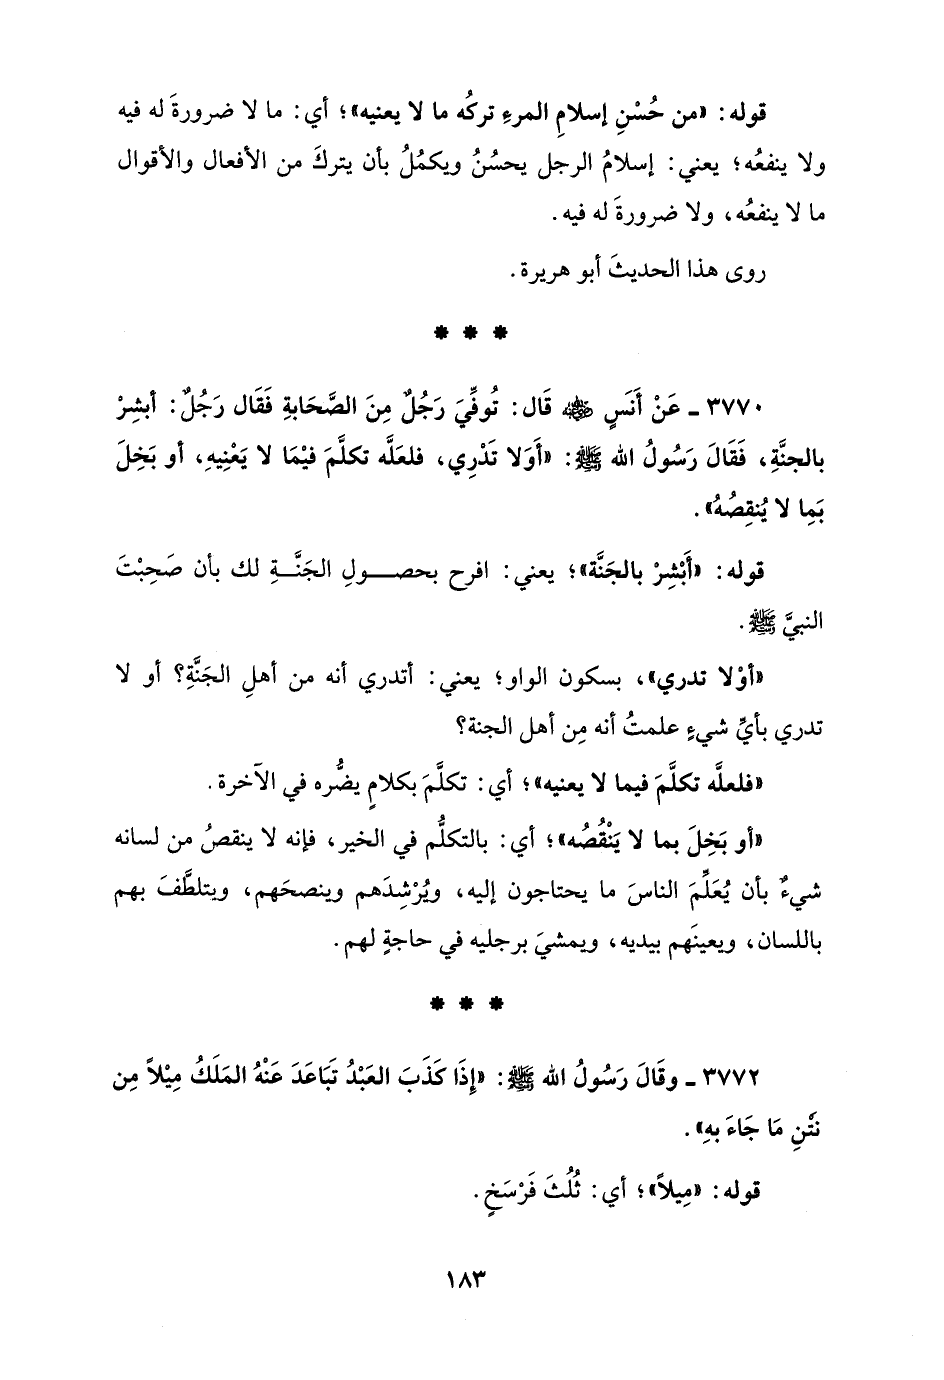 قوله: «من حُسْنِ إسلامِ المرءِ تركُه ما لا يعنيه»؛ أي: ما لا ضرورةَ له فيه
ولا ينفعُه؛ يعني: إسلامُ الرجل يحسُنُ ويكمُلُ بأن يتركَ من الأفعال والأقوال
ما لا ينفعُه، ولا ضرورةَ له فيه.
روى هذا الحديثَ أبو هريرة.
* * *
٣٧٧٠ ـ عَنْ أَنَسٍ ﷺ قَال: تُوفِّيَ رَجُلٌ مِنَ الصَّحَابةِ فَقَال رَجُلٌ: أبشِرْ
بالجنَّةِ، فَقَالَ رَسُولُ الله ﷺ: «أَوَلا تَدْرِي، فلعَلَّه تكلَّمَ فيْمَا لا يَعْنِيهِ، أو بَخِلَ
بَمِا لا يُنقِصُهُ».
قوله: «أَبْشِرْ بالجَنَّة»؛ يعني: افرح بحصولِ الجَنَّةِ لك بأن صَحِبْتَ
النبيَّ ﷺ.
«أوْلا تدري»، بسكون الواو؛ يعني: أتدري أنه من أهلِ الجَنَّةِ؟ أو لا
تدري بأيِّ شيءٍ علمتُ أنه مِن أهل الجنة؟
«فلعلَّه تكلَّمَ فيما لا يعنيه»؛ أي: تكلَّمَ بكلامٍ يضُّره في الآخرة.
«أو بَخِلَ بما لا يَنْقُصُه»؛ أي: بالتكلُّم في الخير، فإنه لا ينقصُ من لسانه
شيءٌ بأن يُعَلِّمَ الناسَ ما يحتاجون إليه، ويُرْشِدَهم وينصحَهم، ويتلطَّفَ بهم
باللسان، ويعينَهم بيديه، ويمشيَ برجليه في حاجةٍ لهم.
* * *
٣٧٧٢ ـ وقَالَ رَسُولُ الله ﷺ: «إِذَا كَذَبَ العَبْدُ تَبَاعَدَ عَنْهُ المَلَكُ مِيْلاً مِن
نَتْنِ مَا جَاءَ بهِ».
قوله: «مِيلاً»؛ أي: ثُلُثَ فَرْسَخٍ.
١٨٣